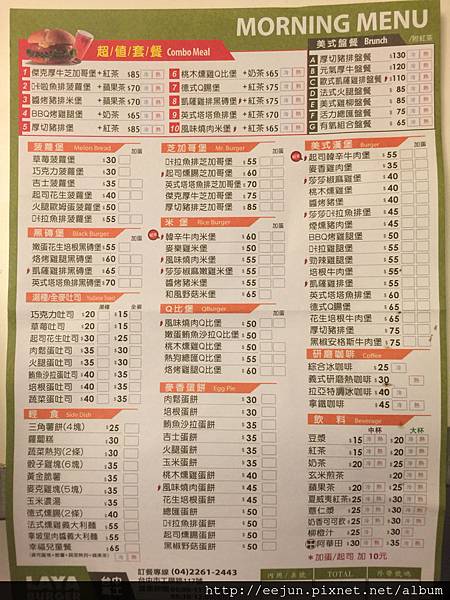 MORNING MENU
/附紅茶
超/值/套/餐 Combo Meal
1 傑克厚牛芝加哥堡 +紅茶 $85 冷 熱
2 咔啦魚排菠蘿堡 +蘋果茶$70 冷 熱
3 醬烤豬排米堡 +蘋果茶$70 冷 熱
4 BBQ烤雞腿堡 +奶茶 $85 冷 熱
5 厚切豬排堡 +紅茶 $85 冷 熱
6 桃木燻雞Q比堡 +奶茶$65 冷 熱
7 德式Q腸堡 +紅茶$75 冷 熱
10 風味燒肉米堡 +紅茶$65 冷 熱
美式盤餐 Brunch
A 厚切豬排盤餐 $130 冷 熱
B 元氣厚牛盤餐 $120 冷 熱
C 歐式凱薩雞排盤餐 $110 冷 熱
D 法式火腿盤餐 $80 冷 熱
E 美式雞柳盤餐 $80 冷 熱
F 活力總匯盤餐 $70 冷 熱
G 有氧組合盤餐 $60 冷 熱
菠蘿堡 Melon Bread 加蛋
草莓菠蘿堡 $30
巧克力菠蘿堡 $30
吉士菠蘿堡 $35
起司花生菠蘿堡 $40
火腿歐姆蛋菠蘿堡 $50
咔拉魚排菠蘿堡 $55
黑磚堡 Black Burger 加蛋
嫩蛋花生培根黑磚堡 $55
烙烤雞腿黑磚堡 $65
凱薩雞排黑磚堡 $65
英式塔塔魚排黑磚堡 $70
巧克力吐司 $20 $15
草莓吐司 $20 $15
起司花生吐司 $30 $25
肉鬆蛋吐司 $35 $30
火腿蛋吐司 $35 $30
鮪魚沙拉蛋吐司 $40 $35
培根蛋吐司 $40 $35
蔬菜蛋吐司 $40 $35
輕食 Side Dish
三角薯餅(4塊) $25
蘿蔔糕 $30
蔬菜熱狗(2條) $30
骰子雞塊(6塊) $30
黃金脆薯 $35
麥克雞塊(5塊) $35
玉米濃湯 $35
德式燻腸(2條) $40
法式燻雞義大利麵 $55
拿坡里肉醬義大利麵 $55
幸福兒童餐 $65
芝加哥堡 Mr. Burger 加蛋
咔拉魚排芝加哥堡 $55
起司燻腸芝加哥堡 $60
英式塔塔魚排芝加哥堡 $70
傑克厚牛芝加哥堡 $75
厚切豬排芝加哥堡 $85
米堡 Rice Burger 加蛋
韓辛牛肉米堡 $60
麥樂雞米堡 $50
風味燒肉米堡 $50
莎莎椒麻嫩雞米堡 $50
醬烤豬米堡 $55
和風野菇米堡 $65
Q比堡 QBurger 加蛋
風味燒肉Q比堡 $50
嫩蛋鮪魚沙拉Q比堡 $50
桃木燻雞Q比堡 $50
熱狗總匯Q比堡 $60
烙烤雞腿Q比堡 $60
麥香蛋餅 Egg Pie
肉鬆蛋餅 $30
培根蛋餅 $30
鮪魚沙拉蛋餅 $30
吉士蛋餅 $30
火腿蛋餅 $30
玉米蛋餅 $30
桃木燻雞蛋餅 $40
風味燒肉蛋餅 $45
花生培根蛋餅 $45
總匯蛋餅 $50
咔拉魚排蛋餅 $50
起司燻腸蛋餅 $50
黑椒豬排蛋餅 $50
美式漢堡 Burger 加蛋
起司韓辛牛肉堡 $55
麥香雞肉堡 $35
莎莎椒麻雞堡 $40
桃木燻雞堡 $40
醬烤豬堡 $45
莎莎咔拉魚排堡 $45
煙燻豬肉堡 $45
BBQ烤雞腿堡 $50
勁辣雞腿堡 $55
培根牛肉堡 $55
凱薩雞排堡 $60
英式塔塔魚排堡 $60
德式Q腸堡 $60
花生培根牛肉堡 $65
厚切豬排堡 $75
黑椒安格斯牛肉堡 $75
研磨咖啡 Coffee
綜合冰咖啡 $25 冷
義式研磨熱咖啡 $30 熱
拉亞特調冰咖啡 $40 冷
拿鐵咖啡 $45 冷 熱
飲料 Beverage
中杯 大杯
豆漿 $15 冷 熱 $20 冷 熱
紅茶 $15 冷 熱 $20 冷 熱
奶茶 $20 冷 熱 $25 冷 熱
玄米煎茶 $20 冷 熱
蘋果茶 $20 冷 熱 $25 冷 熱
夏威夷紅茶 $25 冷 $30 冷
薏仁漿 $25 冷 熱 $30 冷 熱
奶香可可飲 $25 冷 熱 $30 冷 熱
柳橙汁 $25 冷 $30 冷
阿華田 $30 冷 熱
*加蛋/起司 加 10元
訂餐專線 (04)2261-2443
TOTAL
LAYA
BURGER
http://eejun.pixnet.net/album